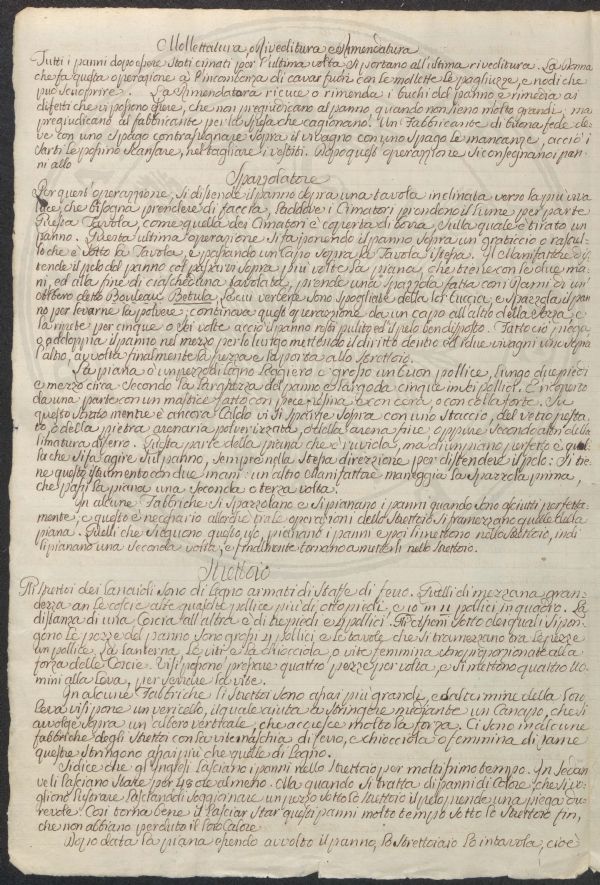 Mollettatura, Riveditura e Rimendatura
Tutti i panni dopo essere stati cimati per l'ultima volta si portano all'ultima riveditura. La Donna
che fa questa operazione à l'incombenza di cavar fuori con le mollette le pagliuzze, e nodi che
può scuoprire. La Rimendatora ricuce o rimenda i buchi del panno e rimedia ai
difetti che vi possono essere, che non pregiudicano al panno quando non sieno molto grandi, ma
pregiudicano al fabbricante per la spesa che cagionano. Un Fabbricante di buona fede de-
ve con uno spago contrassegnare sopra il vivagno con uno spago le mancanze, acciò i
sarti le possino scansare, nel tagliare i vestiti. Dopo quest'operazzione si consegnano i pan-
ni allo
Spazzolatore
Per quest'operazzione, si distende il panno sopra una tavola inclinata verso la più viva
luce, che bisogna prendere di faccia, laddove i Cimatori prendono il lume per parte
Questa Tavola, come quella dei Cimatori è coperta di borra, sulla quale è tirato un
panno. Questa ultima operazione si fa ponendo il panno sopra un graticcio o rastel-
lo che è sotto la Tavola, e passando un capo sopra la Tavola istessa. Il Manifattore
stende il pelo del panno col passarvi sopra più volte la piana, che tiene con le due ma-
ni, ed alla fine di ciascheduna tavolata, prende una spazzola fatta con i rami di un
Albero detto Bouleau Betula, le cui verghe sono spogliate della lor buccia, e spazzola il pan-
no per levarne la polvere; continova quest'operazione da un capo all'altro della Pezza, e
la ripete per cinque o sei volte acciò il panno resti pulito ed il pelo ben disposto. Fatto ciò piega,
o addoppia il panno nel mezzo per lo lungo mettendo il diritto dentro ed i due vivagni uno sopra
l'altro, avvolta finalmente la pezza e la porta allo strettoio.
La piana è un pezzo di legno leggiero e grosso un buon pollice, lungo due piedi
e mezzo circa secondo la larghezza del panno e largo da cinque in sei pollici. È incrostato
da una parte con un mastice fatto con pece resina e con cera, o con colla forte. Su
questo strato mentre è ancora caldo vi si sparge sopra con uno staccio, del vetro pesta-
to, o della pietra arenaria polverizzata, o della arena fine o pure secondo altri della
limatura di ferro. Questa parte della piana che è ruvida, ma di un piano perfetto è quel-
la che si fa agire sul panno, sempre nella stessa direzzione per distendere il pelo: si tie-
ne questo istrumento con due mani: un altro Manifattore maneggia la spazzola prima,
che passi la piana una seconda o terza volta.
In alcune Fabbriche si spazzolano e si pianano i panni quando sono asciutti perfetta-
mente; e questo è necessario allorchè tra le operazioni dello strettoio si framezzano quelle della
piana. Quelli che seguono questo uso, pianano i panni e poi li mettono nello strettoio, indi
si pianano una seconda volta, e finalmente tornano a metterli nello strettoio.
Strettoio
Gli strettoi dei lanaioli sono di legno armati di staffe di ferro. Quelli di mezzana gran-
dezza an le coscie alte qualche pollice più di otto piedi, e 10 in 11 pollici in quadro. La
distanza di una coscia all'altra è di tre piedi e 4 pollici. sotto dei quali si pon-
gono le pezze del panno sono grossi 4 pollici, e le tavole che si tramezzano tra le pezze
un pollice. La lanterna, la viti e la chiocciola o vite femmina sono proporzionate alla
forza delle coscie. Vi si possono pressare quattro pezze per volta, e si mettono quattro uo-
mini alla leva, per serrare la vite.
In alcune Fabbriche li strettoi sono assai più grandi, e al termine della loro
leva vi si pone un verricello, il quale aiuta a stringere mediante un canapo, che si
avvolge sopra un albero verticale, che accresce molto la forza. Ci sono in alcune
fabbriche degli strettoi con la vite maschia di ferro, e chiocciola o femmina di rame
queste stringono assai più che quelle di legno.
Si dice che gl'Inglesi lasciano i panni nello strettoio per moltissimo tempo. In Sedan
ve li lasciano stare per 48 ore almeno. Ma quando si tratta di panni di colore che si vo-
gliono lasciandoli soggiornare un pezzo sotto lo strettoio il pelo prende una piega du-
revole. Così torna bene il lasciar star questi panni molto tempo sotto lo strettoio fin,
che non abbiano perduto il loro calore.
Dopo data la piana essendo avvolto il panno, lo Strettoiaio lo intavola, cioè